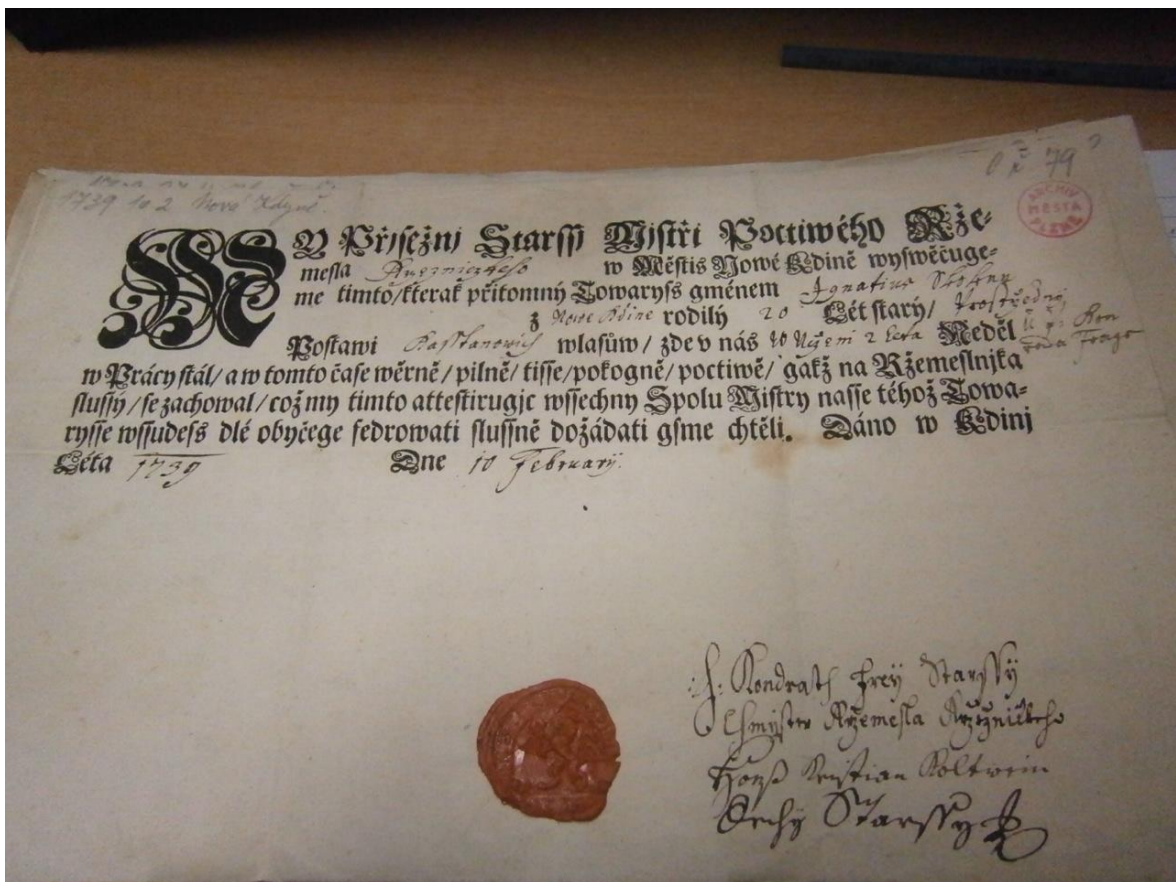 1739 10 2 Nová Kdyně.
79
ARCHIV MĚSTA PLZNĚ
WY Přjsežnj Starssj Mjstři Poctiwého Rže-
mesla w Městis Nowé Kdině wyswěčuge-
me timto/kterak přitomný Towaryss gménem Ignatius
z Nowe Kdine rodilý 20 Lét starý/ Prostředny
Postawi Kasstanowich wlasůw/ zde v nás 2 leta Neděl
w Prácy stál/ a w tomto čase wěrně/ pilně/ tisse/ pokogně/ poctiwě/ gakž na Ržemeslnjka
slussý/ se zachowal/ což my timto attestirugjc wssechny Spolu Mistry nasse téhož Towa-
rysse wssudess dlé obyčege fedrowati slussně dožádati gsme chtěli. Dáno w Kdinj
Léta 1739 Dne 10 February.
Kondrath Frey Starssÿ
Ržemesla
Kristian Koltwein
Starssy